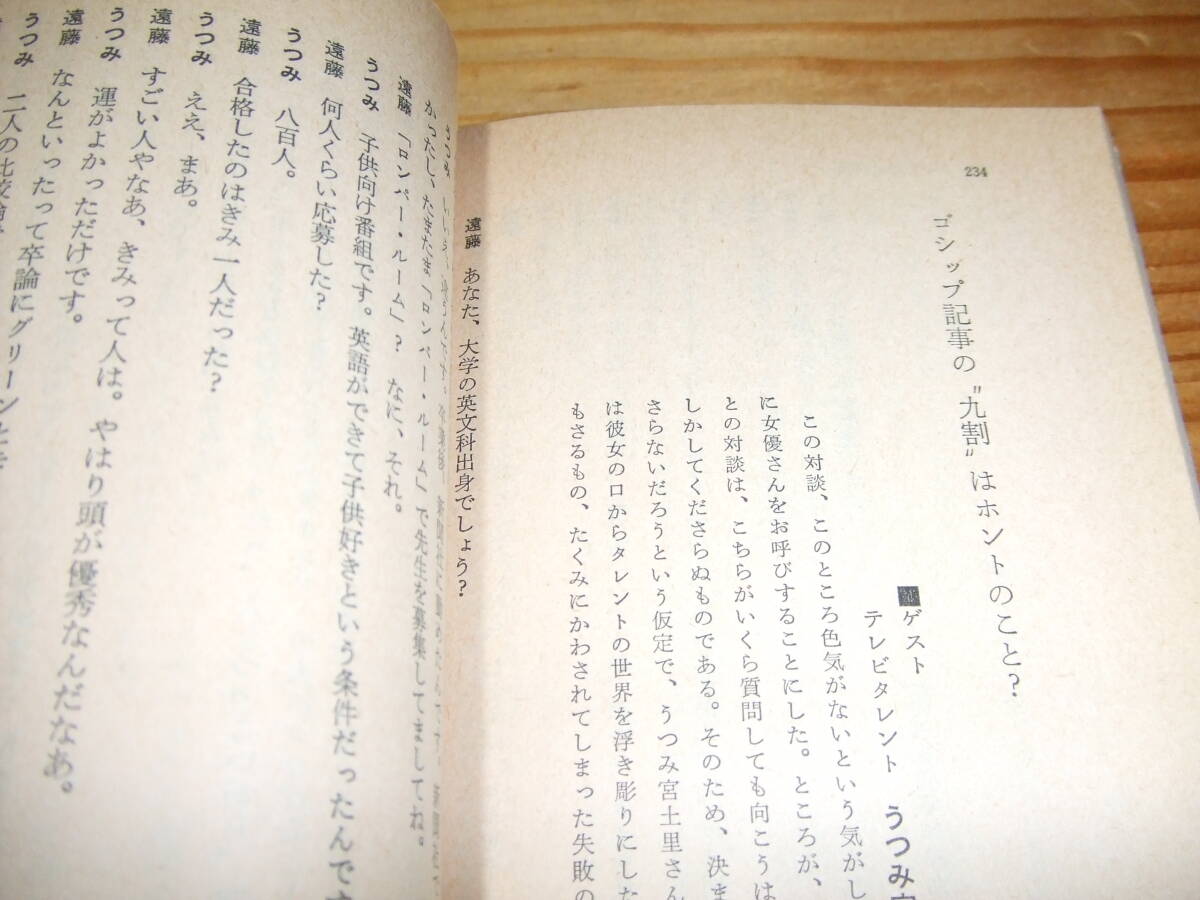 234
ゴシップ記事の〝九割〟はホントのこと?
■ゲスト
テレビタレント うつみ宮
この対談、このところ色気がないという気がし
に女優さんをお呼びすることにした。ところが、
との対談は、こちらがいくら質問しても向こうは
しかしてくださらぬものである。そのため、決ま
さらないだろうという仮定で、うつみ宮土里さん
は彼女の口からタレントの世界を浮き彫りにした
もさるもの、たくみにかわされてしまった失敗の
遠藤 あなた、大学の英文科出身でしょう?
うつみ
かったし、たまたま「ロンパー・ルーム」で先生を募集してましてね。
遠藤 「ロンパー・ルーム」? なに、それ。
うつみ 子供向け番組です。英語ができて子供好きという条件だったんです
遠藤 何人くらい応募した?
うつみ 八百人。
遠藤 合格したのはきみ一人だった?
うつみ ええ、まあ。
遠藤 すごい人やなあ、きみって人は。やはり頭が優秀なんだなあ。
うつみ 運がよかっただけです。
遠藤 なんといったって卒論にグリーン
うつみ 二人の比較論